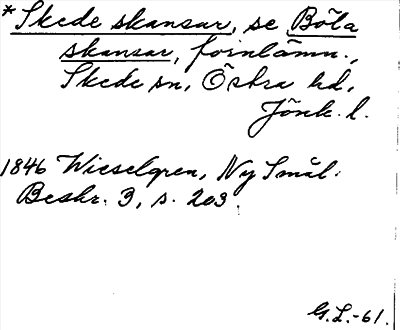 *Skede skansar, se Böla
skansar, fornlämn.,
Skede sn, Östra hd,
Jönk. l.
1846 Wieselgren, Ny Smål.
Beskr. 3, s. 203.
G.L.-61.